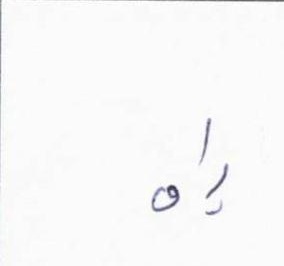 راه